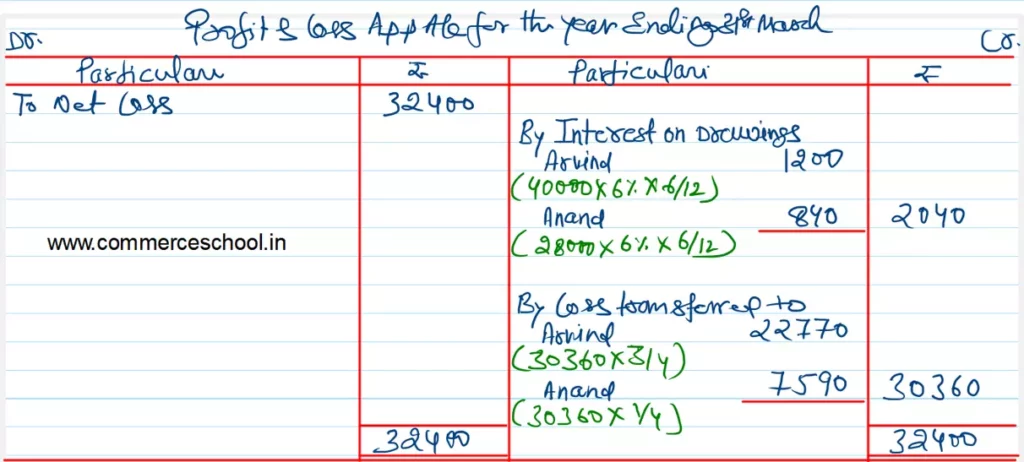 Profit & Loss App A/c for the year Ending 31st March
Dr.
Cr.
Particulars ₹ Particulars ₹
To Net Loss 32400
By Interest on Drawings
Arvind 1200
(40000 x 6% x 6/12)
Anand 840 2040
www.commerceschool.in
(28000 x 6% x 6/12)
By Loss transferred to
Arvind 22770
(30360 x 3/4)
Anand 7590 30360
(30360 x 1/4)
32400 32400